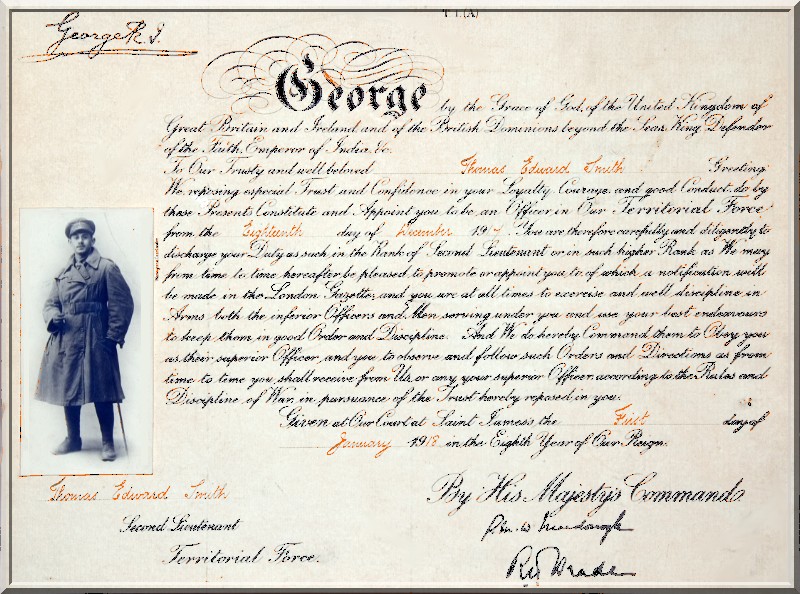 George R. I.
George by the Grace of God, of the United Kingdom of
Great Britain and Ireland and of the British Dominions beyond the Seas King, Defender
of the Faith, Emperor of India, &c.
To Our Trusty and well beloved Thomas Edward Smith Greeting
We, reposing especial Trust and Confidence in your Loyalty, Courage, and good Conduct, do by
these Presents Constitute and Appoint you to be an Officer in Our Territorial Force
from the Eighteenth day of December 191 . You are therefore carefully and diligently to
discharge your Duty as such in the Rank of Second Lieutenant or in such higher Rank as We may
from time to time hereafter be pleased to promote or appoint you to, of which a notification will
be made in the London Gazette, and you are at all times to exercise and well discipline in
Arms both the inferior Officers and Men serving under you and use your best endeavours
to keep them in good Order and Discipline. And We do hereby Command them to Obey you
as their superior Officer, and you to observe and follow such Orders and Directions as from
time to time you shall receive from Us, or any your superior Officer, according to the Rules and
Discipline of War, in pursuance of the Trust hereby reposed in you.
Given at Our Court, at Saint James's, the First day of
January 1918 in the Eighth Year of Our Reign.
Thomas Edward Smith
Second Lieutenant
Territorial Force.
By His Majesty's Command.